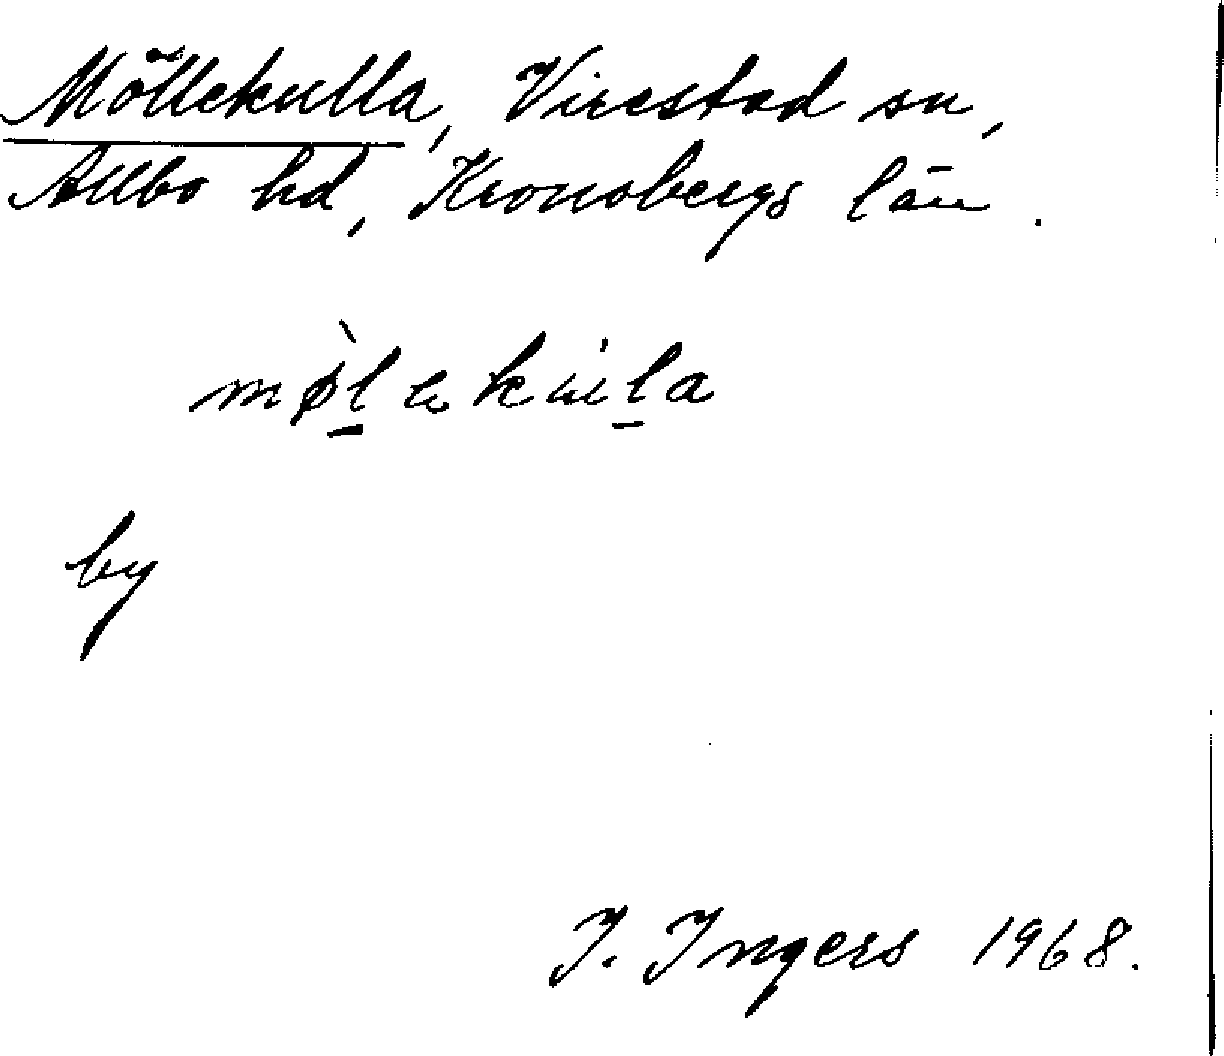 Möllekulla, Virestad sn,
Allbo hd, Kronobergs län.
mø̀l̲ekúl̲a
by
I. Ingers 1968.